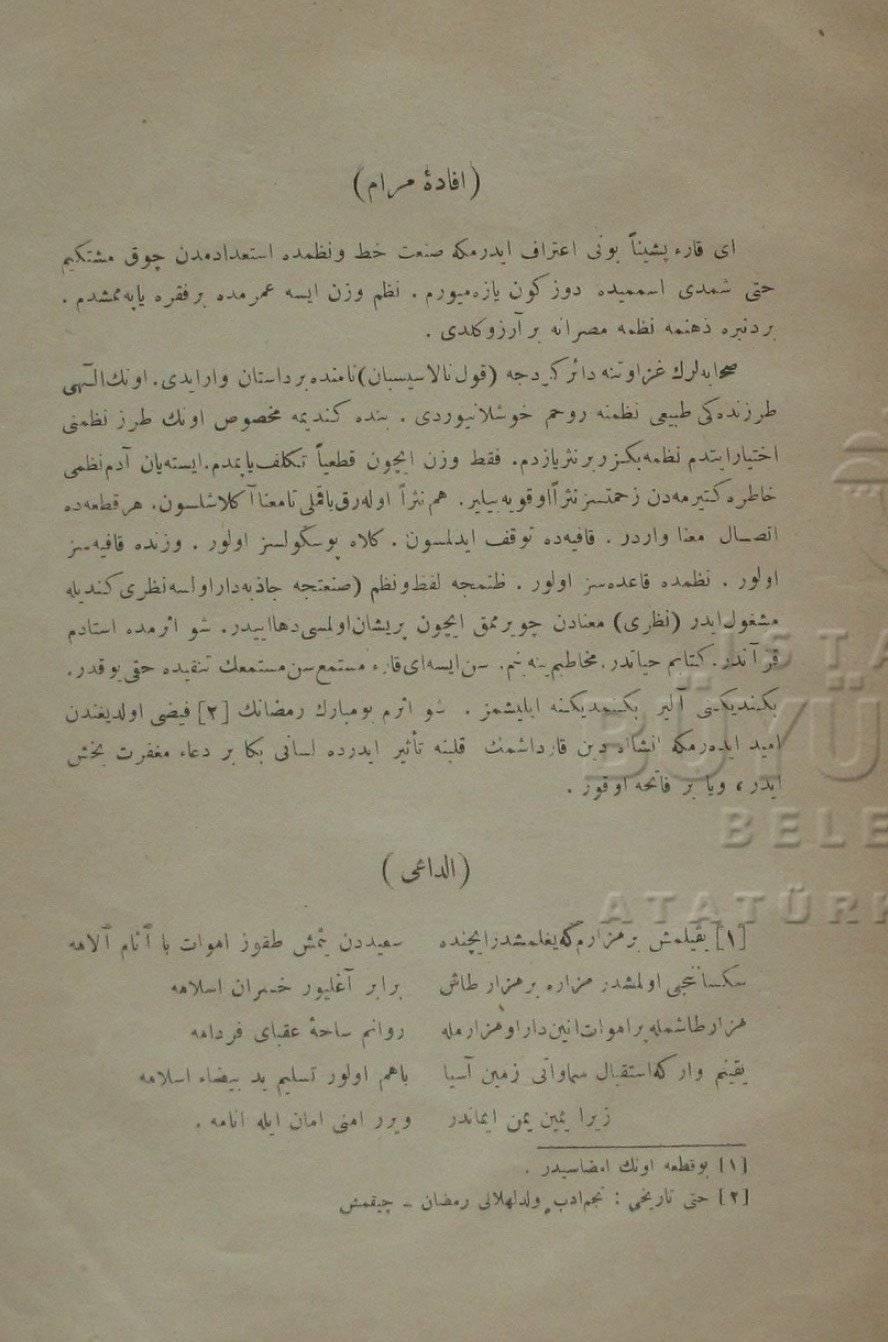 (افادهٔ مرام)
ای قارء پشیناً بونی اعتراف ایدرمكه صنعت خط ونظمده استعدادمدن چوق مشتكیم
حتی شمدی اسممیده دوزكون یازه‌میورم . نظم وزن ایسه عمرمده برفقره یاپه‌ممشدم .
بردنبره ذهنمه نظمه مصرانه بر آرزوكلدی .
صحابه‌لرك غزاوتنه دائر كردجه (قول نالاسیسبان) نامنده برداستان وارایدی . اونك الٓهی
طرزنده‌كی طبیعی نظمنه روحم خوشلانیوردی . بنده كندیمه مخصوص اونك طرز نظمنی
اختیارایتدم نظمه بكزر برنثریازدم . فقط وزن ایچون قطعیاً تكلف یاپمدم . ایسته‌یان آدم نظمی
خاطره كتیرمه‌دن زحمتسز نثراً اوقویه بیلیر . هم نثراً اوله‌رق باقملی تامعنا آكلاشلسون . هر قطعه‌ده
اتصال معنا واردر . قافیه‌ده توقف ایدلمسون . كلاه پوسكولسز اولور . وزنده قافیه‌سز
اولور . نظمده قاعده‌سز اولور . ظنمجه لفظ ونظم (صنعتجه جاذبه‌دار اولسه نظری كندیله
مشغول ایدر (نظری) معنادن چویرممق ایچون پریشان اولمسی دها اییدر . شو اثرمده استادم
قرآندر . كتابم حیاتدر . مخاطبم ینه بنم . سن ایسه ای قارء مستمع سن مستمعك تنقیده حقی یوقدر .
بكندیكنی آلیر بكنمدیكنه ایلیشمز . شو اثرم بومبارك رمضانك [٢] فیضی اولدیغندن
امید ایده‌رمكه انشاالله دین قارداشمك قلبنه تأثیر ایدرده لسانی بكا بر دعاء مغفرت بخش
ایدر ، ویا بر فاتحه اوقور .
(الداعی)
[١] یقیلمش برمزارم كه یغلمشدر ایچنده سعیددن یتمش طقوز اموات با آثام آلامه
سكساننجی اولمشدر مزاره برمزار طاش برابر آغلیور خسران اسلامه
مزار طاشمله پراموات انین‌دار او مزارمله روانم ساحهٔ عقبای فردامه
یقینم واركه استقبال سماواتی زمین آسیا باهم اولور تسلیم ید بیضاء اسلامه
زیرا یمین یمن ایماندر ویرر امنی امان ایله انامه .
[١] بوقطعه اونك امضاسیدر .
[٢] حتی تاریخی : نجم ادب ولد لهلالی رمضان ـ چیقمش